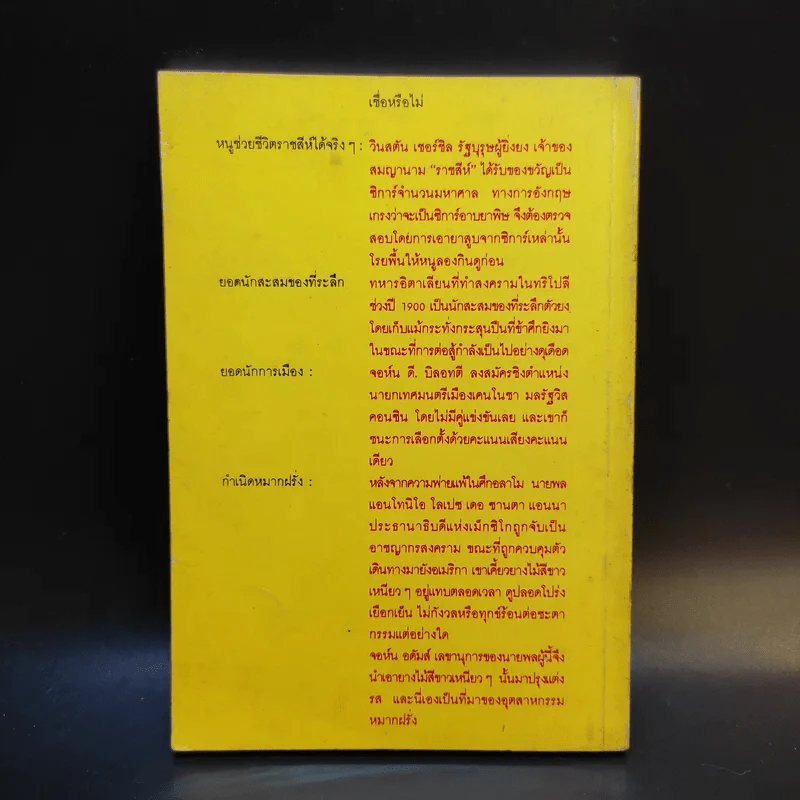 เชื่อหรือไม่
หนูช่วยชีวิตราชสีห์ได้จริง ๆ : วินสตัน เชอร์ชิล รัฐบุรุษผู้ยิ่งยง เจ้าของ
สมญานาม “ราชสีห์” ได้รับของขวัญเป็น
ซิการ์จำนวนมหาศาล ทางการอังกฤษ
เกรงว่าจะเป็นซิการ์อาบยาพิษ จึงต้องตรวจ
สอบโดยการเอายาสูบจากซิการ์เหล่านั้น
โรยพื้นให้หนูลองกินดูก่อน
ยอดนักสะสมของที่ระลึก ทหารอิตาเลียนที่ทำสงครามในทริโปลี
ช่วงปี 1900 เป็นนักสะสมของที่ระลึกตัวยง
โดยเก็บแม้กระทั่งกระสุนปืนที่ข้าศึกยิงมา
ในขณะที่การต่อสู้กำลังเป็นไปอย่างดุเดือด
ยอดนักการเมือง : จอห์น ดี. บิลอทตี ลงสมัครชิงตำแหน่ง
นายกเทศมนตรีเมืองเคนโนชา มลรัฐวิส
คอนซิน โดยไม่มีคู่แข่งขันเลย และเขาก็
ชนะการเลือกตั้งด้วยคะแนนเสียงคะแนน
เดียว
กำเนิดหมากฝรั่ง : หลังจากความพ่ายแพ้ในศึกอลาโม นายพล
แอนโทนิโอ โลเปซ เดอ ซานตา แอนนา
ประธานาธิบดีแห่งเม็กซิโกถูกจับเป็น
อาชญากรสงคราม ขณะที่ถูกควบคุมตัว
เดินทางมายังอเมริกา เขาเคี้ยวยางไม้สีขาว
เหนียว ๆ อยู่แทบตลอดเวลา ดูปลอดโปร่ง
เยือกเย็น ไม่กังวลหรือทุกข์ร้อนต่อชะตา
กรรมแต่อย่างใด
จอห์น อดัมส์ เลขานุการของนายพลผู้นี้จึง
นำเอายางไม้สีขาวเหนียว ๆ นั้นมาปรุงแต่ง
รส และนี่เองเป็นที่มาของอุตสาหกรรม
หมากฝรั่ง